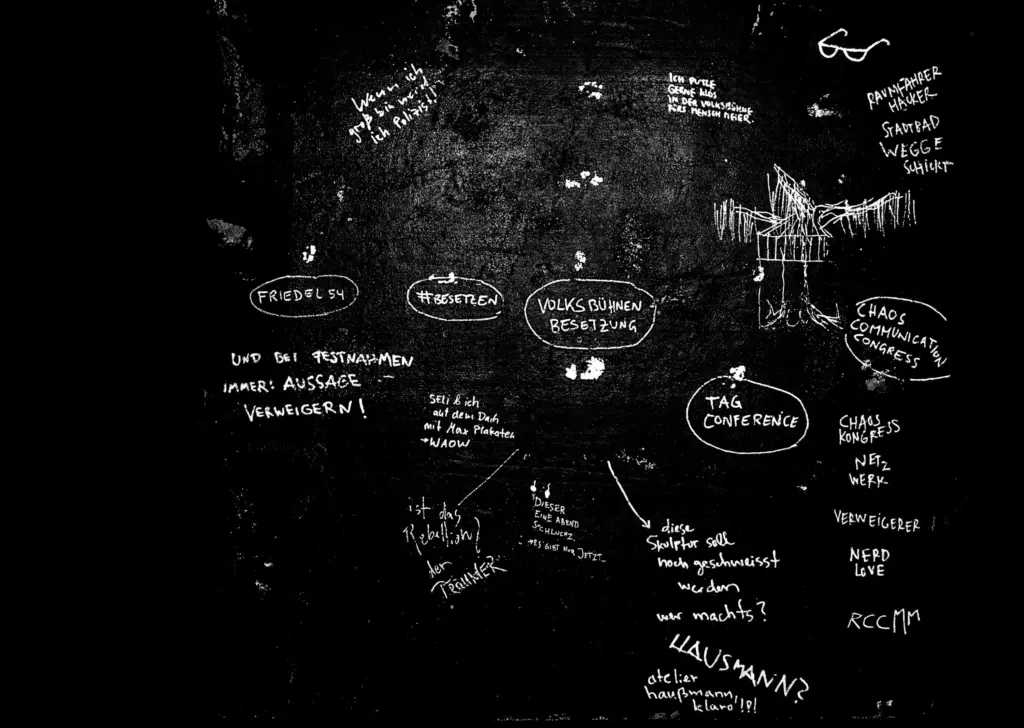 Wenn ich
groß bin werd
ich Polizist!
ICH PUTZE
GERNE KLOS
IN DER VOLKSBÜHNE
FÜRS MENSCH MEIER.
RAUMFAHRER
HACKER
STADTBAD
WEGGE
SCHICKT
FRIEDEL 54
#BESETZEN
VOLKSBÜHNEN
BESETZUNG
CHAOS
COMMUNICATION
CONGRESS
UND BEI FESTNAHMEN
IMMER: AUSSAGE
VERWEIGERN!
SELI & ich
auf dem Dach
mit Max Plakaten
→ WAOW
TAG
CONFERENCE
CHAOS
KONGRESS
NETZ
WERK
VERWEIGERER
NERD
LOVE
RCCMM
ist das
Rebellion?
der
TRÄUMER
DIESER
EINE ABEND
SCHLUCHZ.
→ ES GIBT NUR JETZT.
diese
Skulptur soll
noch geschweisst
werden
wer machts?
HAUSMANN?
atelier
haußmann,
klaro!?!